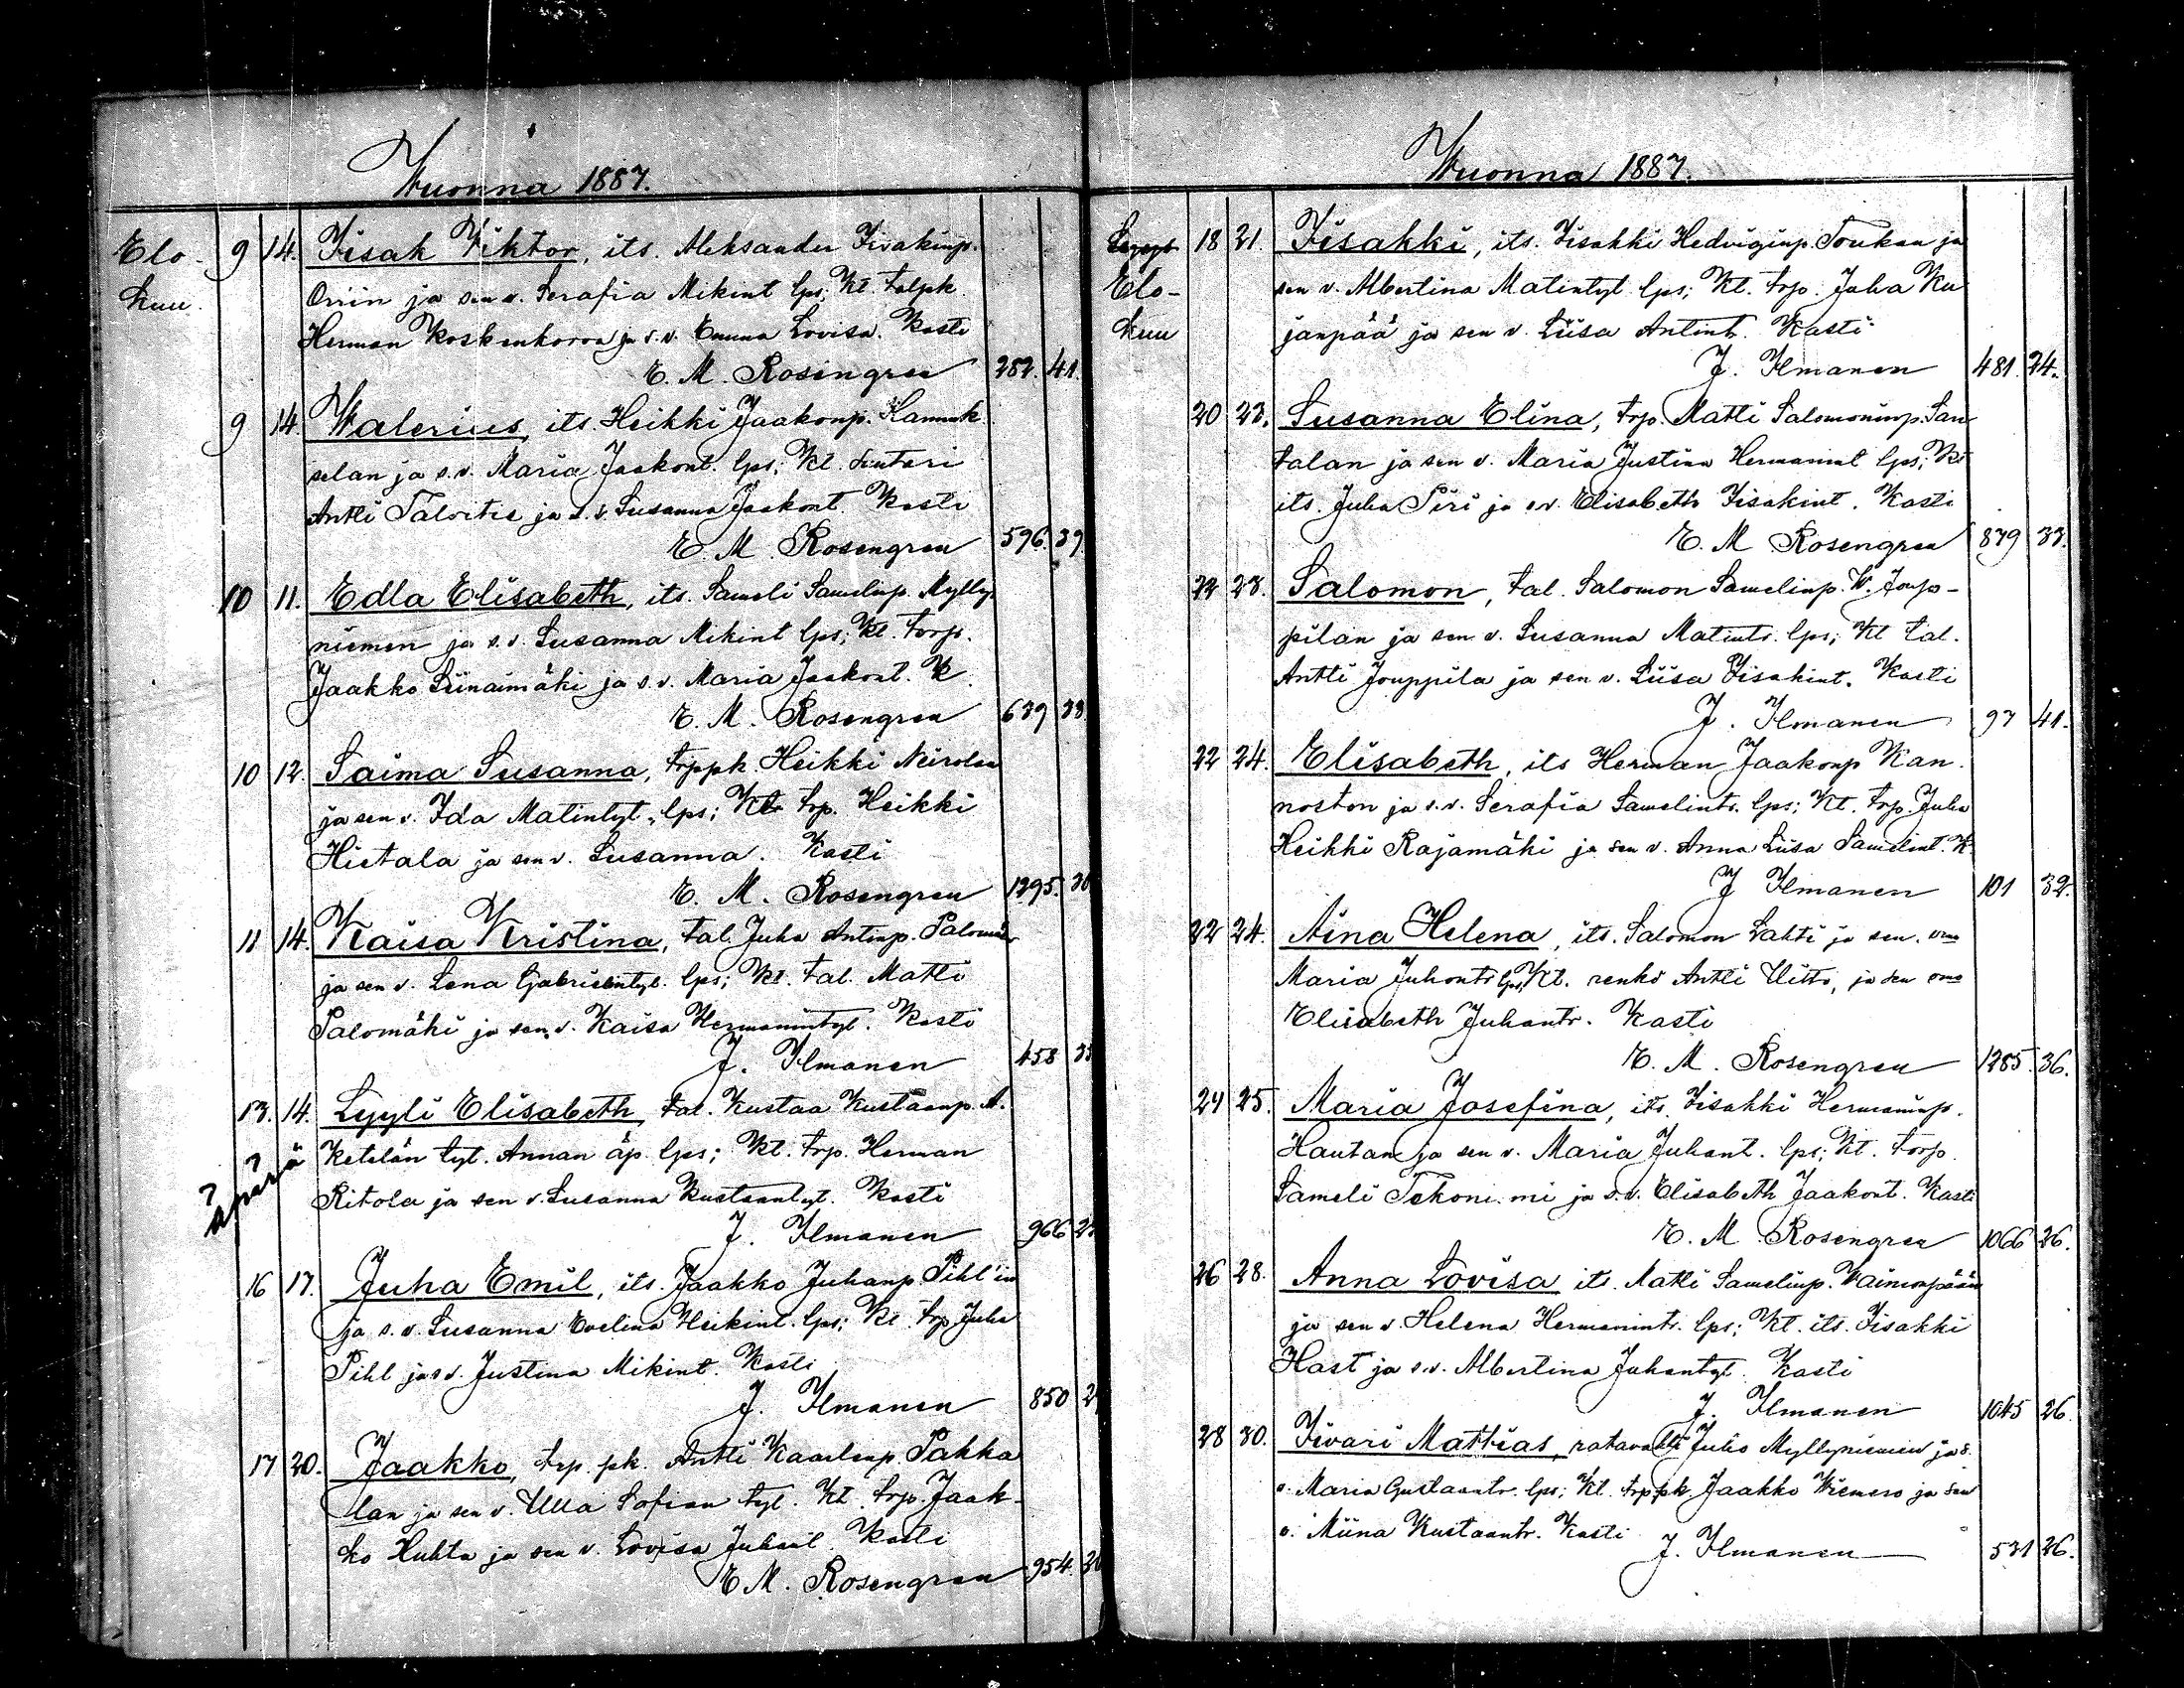 Wuonna 1887.
Elo-
kuu.
9 14. Iisak Viktor, its. Aleksander Iisakinp.
Orrin ja sen v. Serafia Mikint lps; Kt. talpk.
Herman Koskenkorva ja s. v. Emma Lovisa. Kasti
E. M. Rosengren 282. 41.
9 14. Walerius, its Heikki Jaakonp. Hannuk
selan ja s. v. Maria Jaakont. lps; Kt. suutari
Antti Talvitie ja s. v. Susanna Jaakont. Kasti
E. M. Rosengren 596. 39.
10 11. Edla Elisabeth, its. Sameli Samelinp. Mylly
niemen ja s. v. Susanna Mikint lps; Kt. torp.
Jaakko Liinaimäki ja s. v. Maria Jaakont. K.
E. M. Rosengren 639 33
10 12. Saima Susanna, trppk. Heikki Neirolan
ja sen v. Ida Matintyt. lps; Kt. trp. Heikki
Hietala ja sen v. Susanna. Kasti
E. M. Rosengren 1295.
11 14. Kaisa Kristina, tal. Juha Antinp. Palomäen
ja sen v. Lena Gabrielintyt. lps; Kt. tal. Matti
Palomäki ja sen v. Kaisa Hermanintyt. Kasti
J. Ilmanen 458
13. 14. Lyyli Elisabeth, tal. Kustaa Kustaanp. A.
Ketelän tyt. Annan äp. lps; Kt. trp. Herman
äpärä
Ritola ja sen v. Susanna Kustaantyt. Kasti
J. Ilmanen 966
16 17. Juha Emil, its. Jaakko Juhanp. Pihl'in
ja s. v. Susanna Evelina Heikint. lps; Kt. trp. Juha
Pihl ja s v. Justina Mikint. Kasti
J. Ilmanen 850
17 20. Jaakko, trp. pk. Antti Kaarlenp. Pakka
lan ja sen v. Ulla Sofian tyt. Kt. trp. Jaak-
ko Huhta ja sen v. Lovisa Juhant. Kasti
E. M. Rosengren 954.
Wuonna 1887.
Elo-
kuu
18 21. Iisakki, its. Iisakki Hedviginp. Toukan ja
sen v. Albertina Matintyt. lps; Kt. trp. Juha Ku
janpää ja sen v. Liisa Antint. Kasti
J. Ilmanen 481. 24.
20 23. Susanna Elina, trp. Matti Salomoninp. San
talan ja sen v. Maria Justina Hermanint lps; Kt
its. Juha Piri ja s v. Elisabeth Iisakint. Kasti
E. M Rosengren 839 33.
22 23. Salomon, tal. Salomon Samelinp. W. Joup-
pilan ja sen v. Susanna Matintr. lps; Kt tal.
Antti Jouppila ja sen v. Liisa Iisakint. Kasti
J. Ilmanen 97 41.
22 24. Elisabeth, its Herman Jaakonp Kan
noston ja s. v. Serafia Samelintr. lps; Kt. trp. Juha
Heikki Rajamäki ja sen v. Anna Liisa Samelint. K.
J Ilmanen 101 32.
22 24. Aina Helena, its. Salomon Lahti ja sen vmo
Maria Juhontr lps; Kt. renki Antti Uitto, ja sen vmo
Elisabeth Juhantr. Kasti
E. M. Rosengren 1285. 36.
24 25. Maria Josefina, its. Iisakki Hermaninp.
Hautan ja sen v. Maria Juhant. lps; Kt. torp.
Sameli Tekoniemi ja s. v. Elisabeth Jaakont. Kasti
E. M. Rosengren 1066 26.
26 28. Anna Lovisa its. Matti Samelinp. Wainionpään
ja sen v. Helena Hermanintr. lps; Kt. its. Iisakki
Hast ja s v. Albertina Juhantyt. Kasti
J. Ilmanen 1045 26.
28 30. Iivari Mattias, ratavahti Juho Myllyniemen ja s.
v. Maria Gustaantr. lps; Kt. trppk Jaakko Kiemeso ja sen
v. Miina Kustaantr. Kasti
J. Ilmanen 531 26.